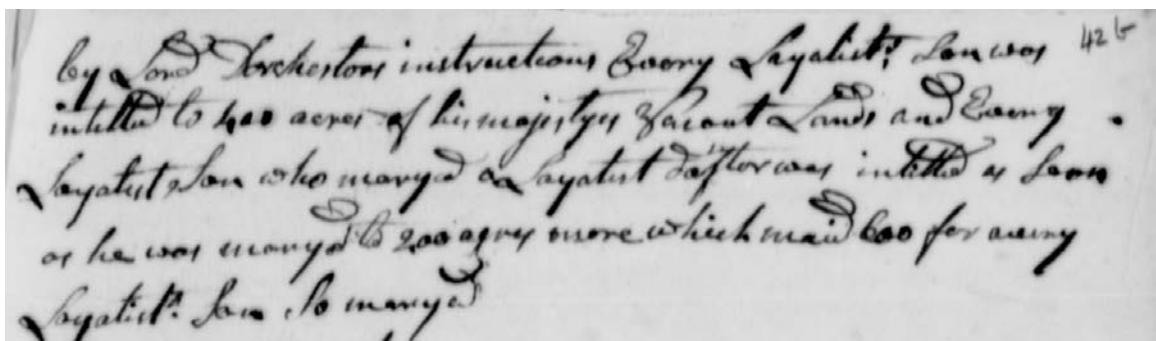 by Lord Dorchestors instructions Every Loyalists Son was 426
intitled to 400 acres of his majestys Vacant Lands and Every
Loyalist Son who maryed a Loyalist dafter was intitled as Soon
as he was maryed to 200 acres more which maid 600 for avery
Loyalists Son So maryed